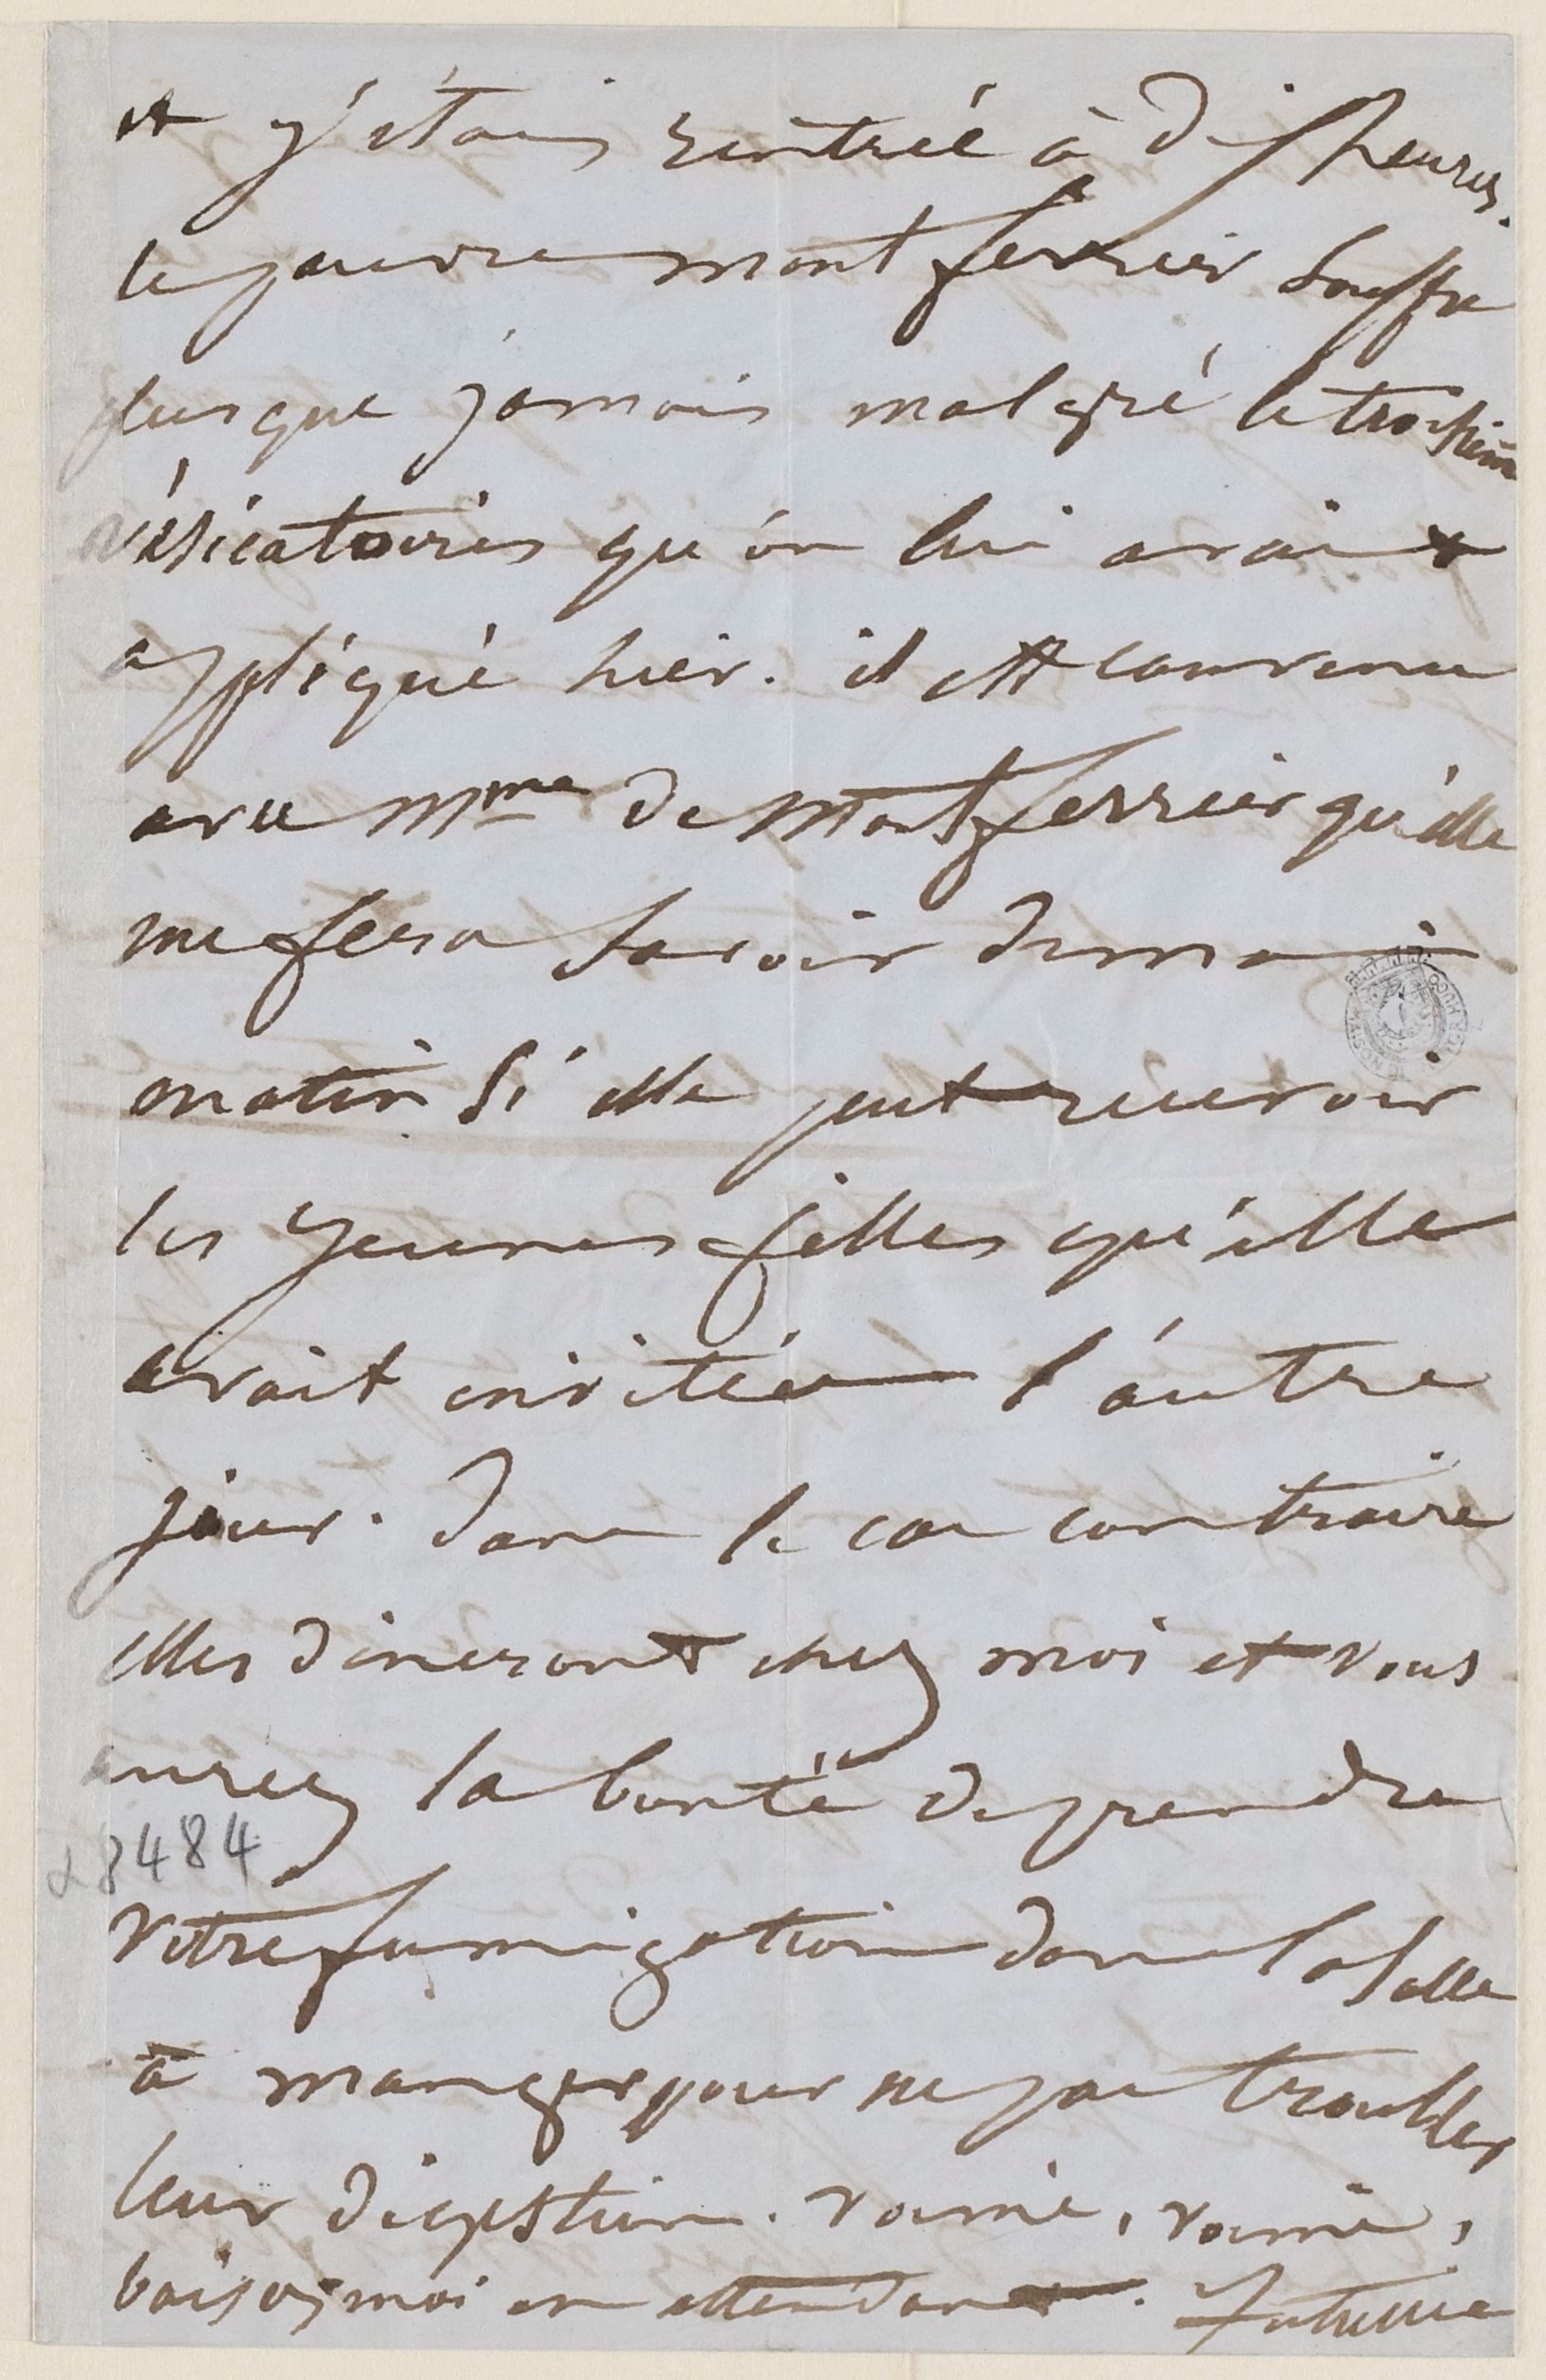 et j'étais rentrée à dix heures.
le pauvre montferrier souffre
plus que jamais malgré le troisième
vésicatoires qu'on lui avait
appliqué hier. il est convenu
avec Mme de Montferrier qu'elle
me fera savoir demain
matin si elle peut recevoir
les jeunes filles qu'elle
avait invitées l'autre
jour. dans le cas contraire
elles dineront chez moi et vous
aurez la bonté de prendre
votre fumigation dans la salle
à manger pour ne pas troubler
leur digestion.
baisez moi en attendant. Juliette
28484